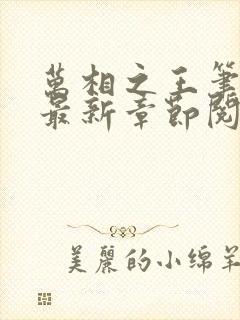 萬相之王筆
最新章節閱
美麗的小绵羊